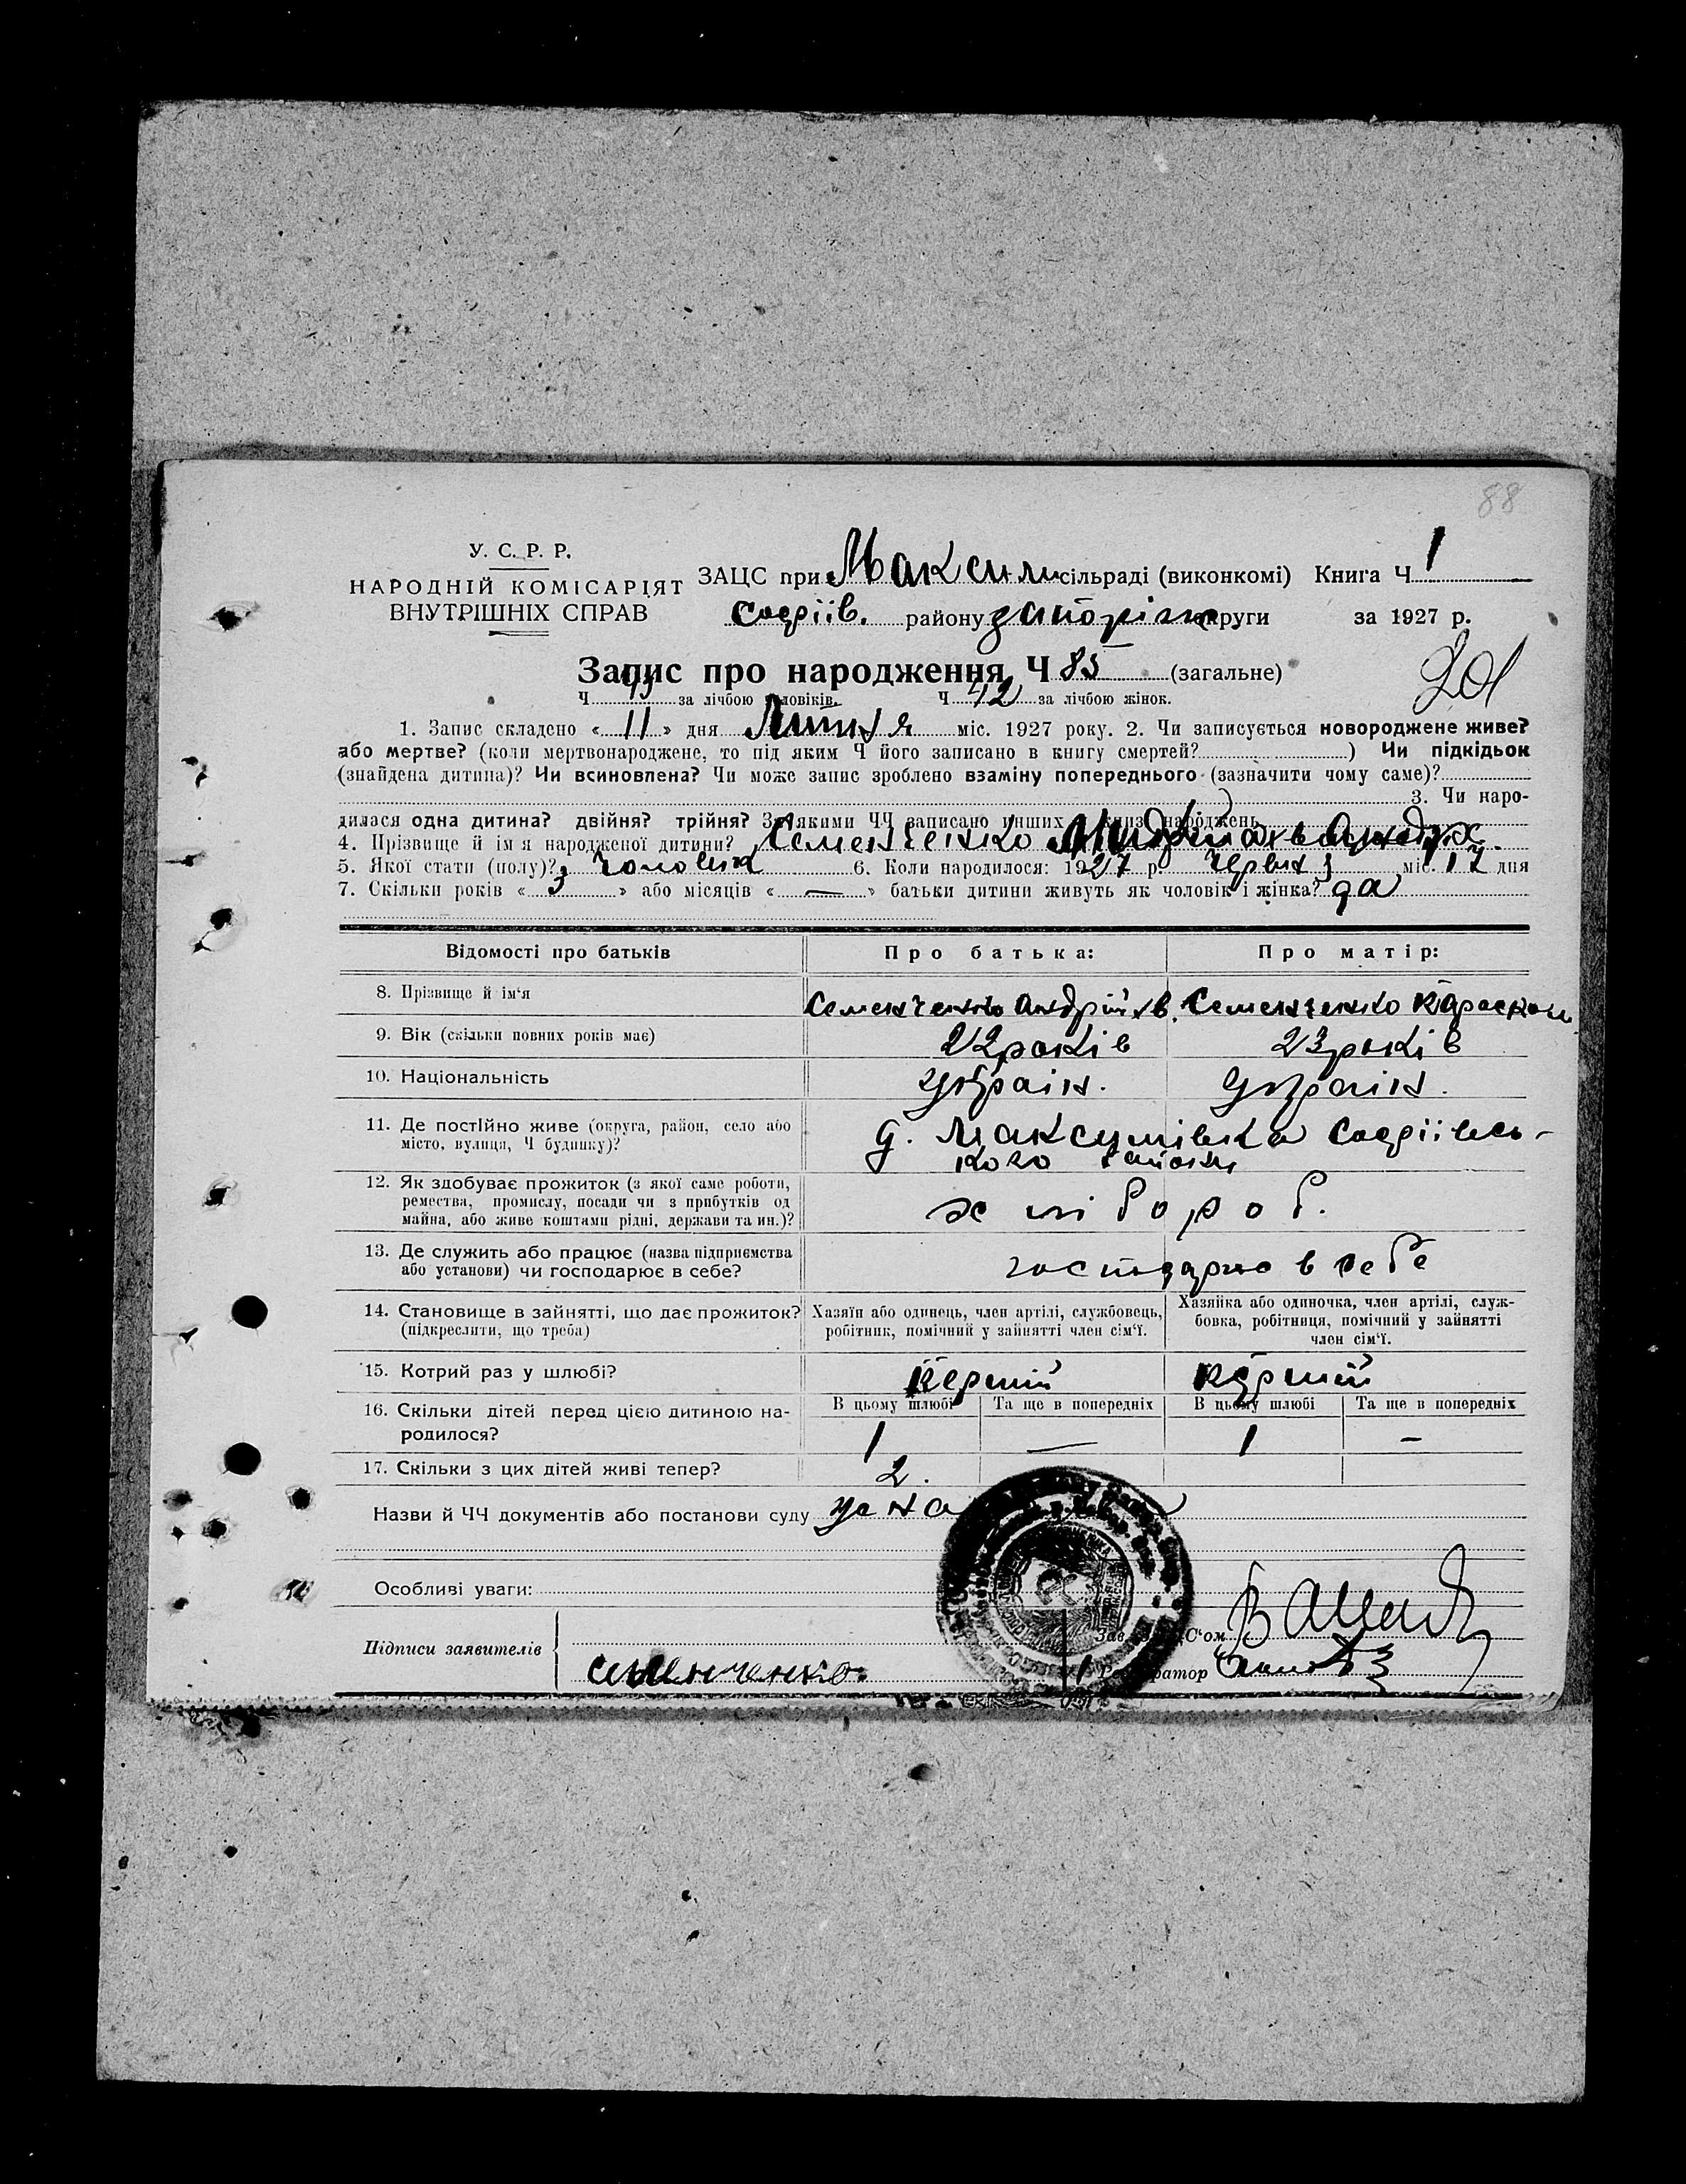 88
У. С. Р. Р.
НАРОДНІЙ КОМІСАРІЯТ
ВНУТРІШНІХ СПРАВ
ЗАЦС при сільраді (виконкомі) Книга Ч. 1
Софіїв. району запоріж округи за 1927 р.
Запис про народження Ч 85 (загальне)
Ч 43 за лічбою чоловіків. Ч 42 за лічбою жінок.
1. Запис складено « 11 » дня Липня міс. 1927 року. 2. Чи записується новороджене живе?
або мертве? (коли мертвонароджене, то під яким Ч його записано в книгу смертей? ) Чи підкідьок
(знайдена дитина)? Чи всиновлена? Чи може запис зроблено взаміну попереднього (зазначити чому саме)?
3. Чи наро-
дилася одна дитина? двійня? трійня? За якими ЧЧ записано инших в книзі народжень
4. Прізвище й ім'я народженої дитини? Семенченко
5. Якої стати (полу)? чоловіча 6. Коли народилося: 1927 р. Червня міс. 17 дня
7. Скільки років « 3 » або місяців « — » батьки дитини живуть як чоловік і жінка? да
Відомості про батьків Про батька: Про матір:
8. Прізвище й ім'я Семенченко Андрій Семенченко
9. Вік (скільки повних років має) 22 років 23 років
10. Національність Україн. Україн.
11. Де постійно живе (округа, район, село або
місто, вулиця, Ч будинку)?
Максимівка Софіївсь-
кого району
12. Як здобуває прожиток (з якої саме роботи,
ремества, промислу, посади чи з прибутків од
майна, або живе коштами рідні, держави та ин.)?
хлібороб.
13. Де служить або працює (назва підприємства
або установи) чи господарює в себе?
господарює в себе
14. Становище в зайнятті, що дає прожиток?
(підкреслити, що треба)
Хазяїн або одинець, член артілі, службовець,
робітник, помічний у зайнятті член сім'ї.
Хазяйка або одиночка, член артілі, служ-
бовка, робітниця, помічний у зайнятті
член сім'ї.
15. Котрий раз у шлюбі?
16. Скільки дітей перед цією дитиною на-
родилося?
В цьому шлюбі Та ще в попередніх В цьому шлюбі Та ще в попередніх
1 — 1 —
17. Скільки з цих дітей живі тепер? 2.
Назви й ЧЧ документів або постанови суду
Особливі уваги:
Підписи заявителів
Семенченко
Зав. ЗАЦС'ом
Реєстратор